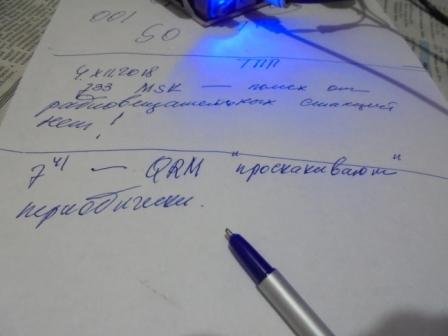 001
50
4 XII 2018
7³³ MSK — помех от
радиовещательных станций
нет!
7⁴¹ — QRM "проскакивают"
периодически.